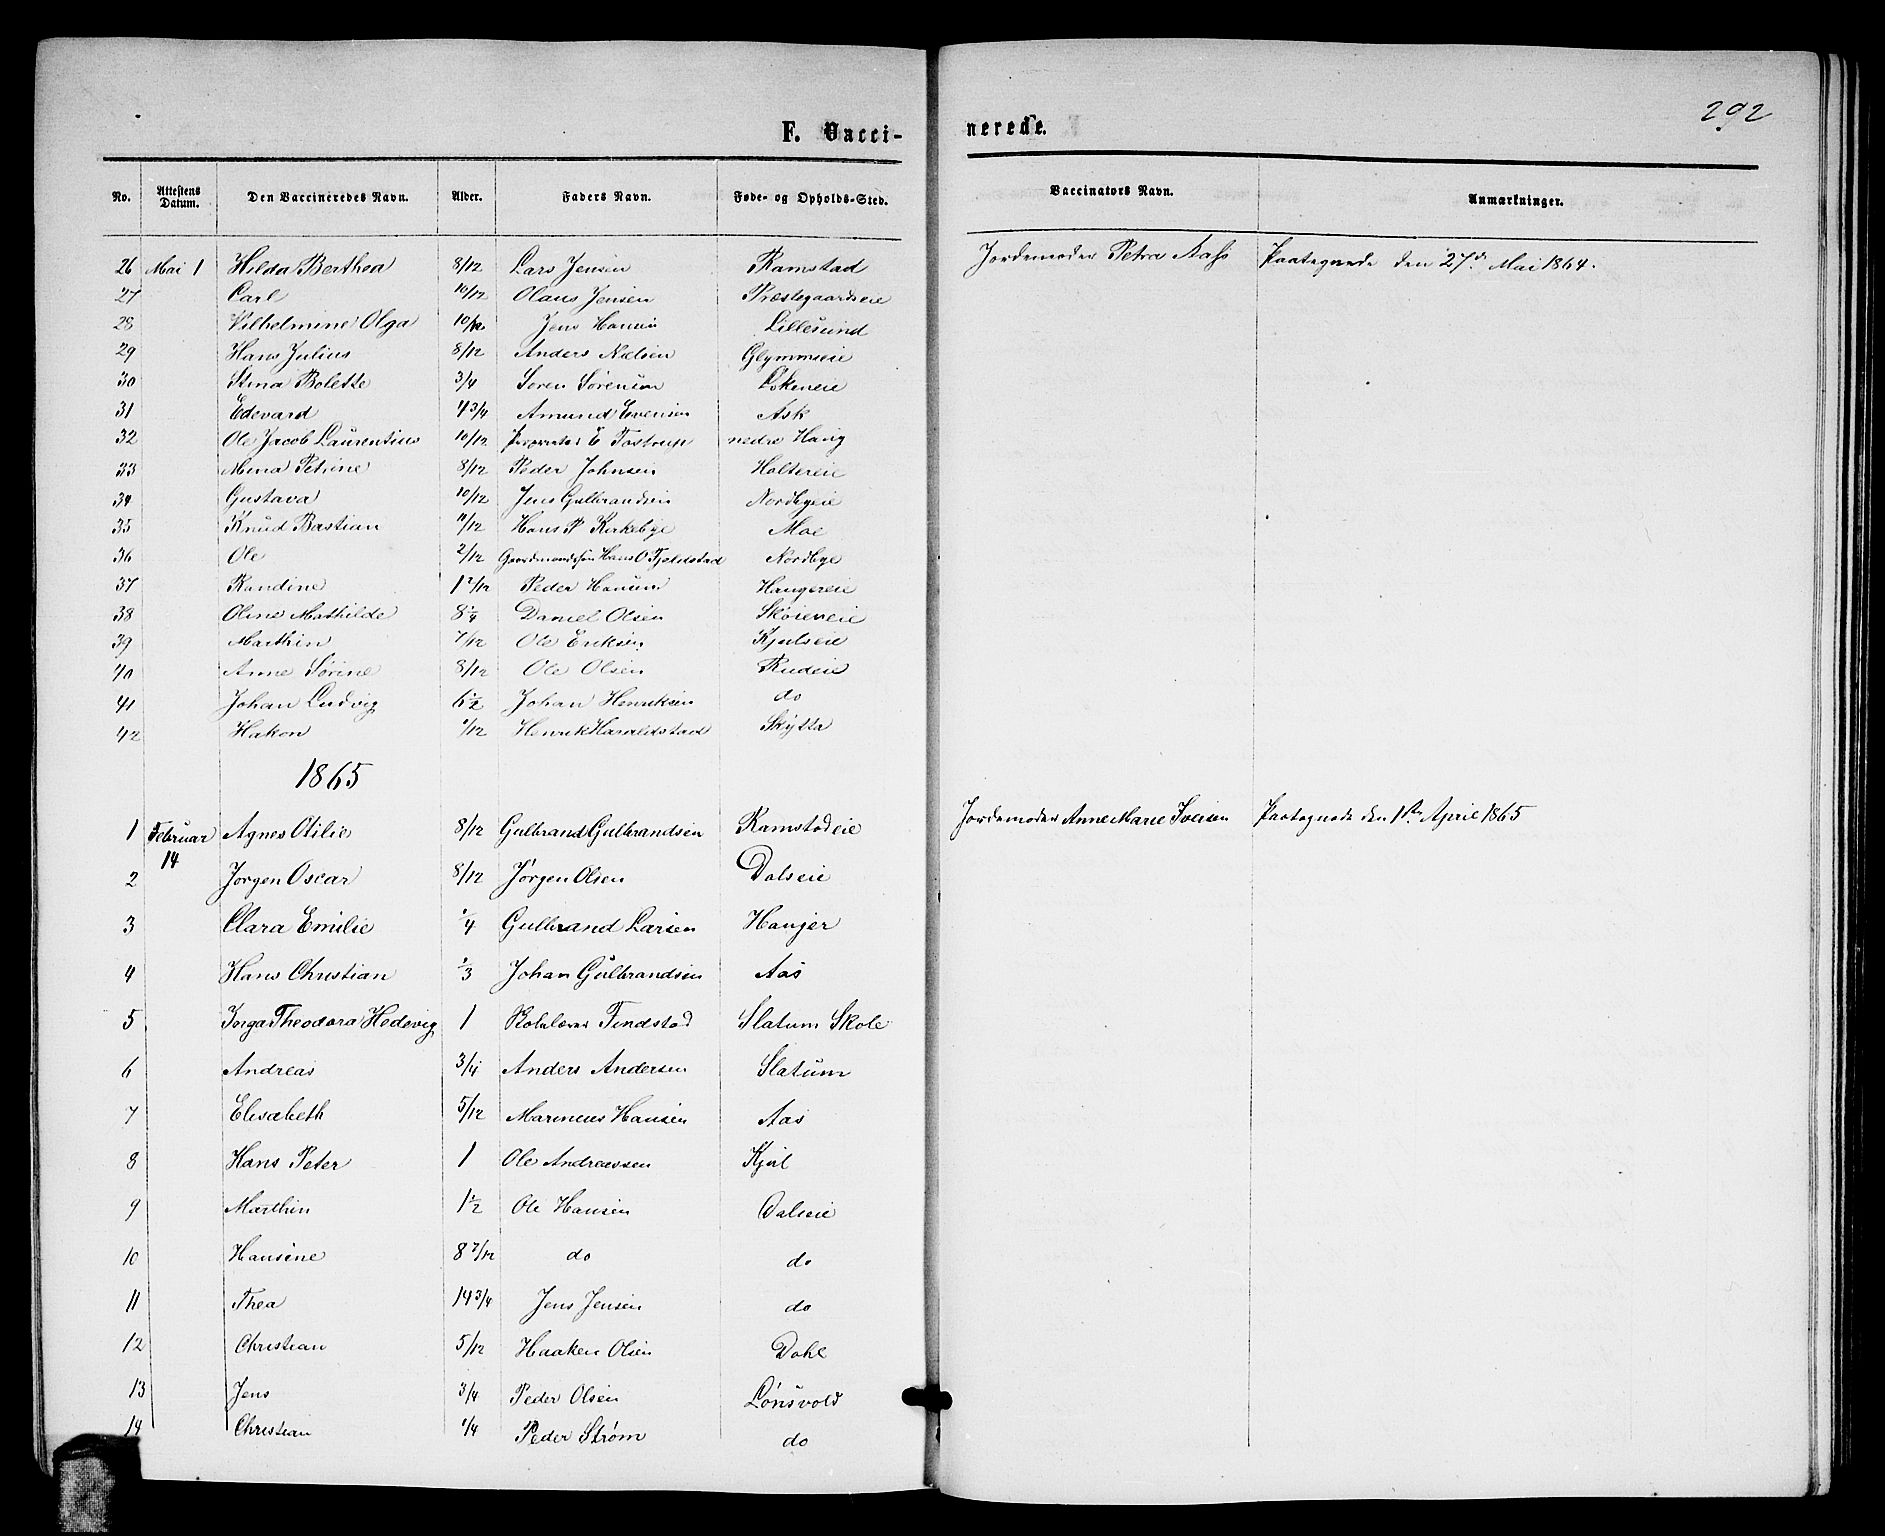 292
F. Vacci- nerede.
No. Attestens Datum. Den Vaccineredes Navn. Alder. Faders Navn. Føde- og Opholds-Sted. Vaccinators Navn. Anmærkninger.
26 Mai 1 Hilda Berthea 8/12 Lars Jensen Ramstad Jordemoder Petra Aass Paategnede den 27d Mai 1864.
27 Carl 10/12 Olaus Jensen Præstegaardseie
28 Vilhelmine Olga 10/12 Jens Hansen Lillesund
29 Hans Julius 8/12 Anders Nielsen Glymmseie
30 Stina Bolette 3/4 Søren Sørensen Løkeneie
31 Edevard 4 3/4 Amund Evensen Ask
32 Ole Jacob Laurentius 10/12 E Tostrup nedre Haug
33 Mina Petrine 8/12 Peder Johnsen Holtereie
34 Gustava 10/12 Jens Gulbrandsen Nordbyeie
35 Knud Bastian 11/12 Hans P Kirkebye Moe
36 Ole 2/12 Gaardmandssøn Hans O Fjeldstad Nordbye
37 Randine 1 7/12 Peder Hansen Haugereie
38 Oline Mathilde 8 1/4 Daniel Olsen Skøieneie
39 Marthin 7/12 Ole Eriksen Kjulseie
40 Anne Sørine 8/12 Ole Olsen Rudeie
41 Johan Ludvig 6 1/2 Johan Henriksen do
42 Hakon /12 Henrik Haraldstad Skytta
1865
1 Februar 14 Agnes Otilie 8/12 Gulbrand Gulbrandsen Ramstadeie Jordemoder Anne Marie Iversen Paategnede den 1ste April 1865
2 Jørgen Oscar 8/12 Jørgen Olsen Dalseie
3 Clara Emilie 1/4 Gulbrand Larsen Hauger
4 Hans Christian 1/3 Johan Gulbrandsen Aas
5 Inga Theodora Hedevig 1 Skolelærer Findstad Slatum Skole
6 Andreas 3/4 Anders Andersen Slatum
7 Elisabeth 5/12 Marineus Hansen Aas
8 Hans Peter 1 Ole Andreassen Kjul
9 Marthin 1 1/2 Ole Hansen Dalseie
10 Hansine 8 7/12 do do
11 Thea 14 3/4 Jens Jensen do
12 Christian 5/12 Haaken Olsen Dahl
13 Jens 3/4 Peder Olsen Lønsvold
14 Christian 1/4 Peder Strøm do